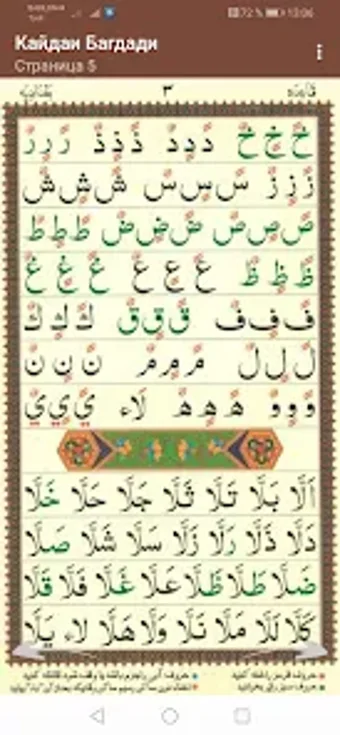 72 % 13:06
Кайдаи Багдади
Страница 5
قاعده ٣ بغدادیه
خً خٍ خٌ دً دٍ دٌ ذً ذٍ ذٌ رً رٍ رٌ
زً زٍ زٌ سً سٍ سٌ شً شٍ شٌ
صً صٍ صٌ ضً ضٍ ضٌ طً طٍ طٌ
ظً ظٍ ظٌ عً عٍ عٌ غً غٍ غٌ
فً فٍ فٌ قً قٍ قٌ كً كٍ كٌ
لً لٍ لٌ مً مٍ مٌ نً نٍ نٌ
وً وٍ وٌ هً هٍ هٌ لاء يً يٍ يٌ
اَلَّا بَلَّا تَلَّا ثَلَّا جَلَّا حَلَّا خَلَّا
دَلَّا ذَلَّا رَلَّا زَلَّا سَلَّا شَلَّا صَلَّا
ضَلَّا طَلَّا ظَلَّا عَلَّا غَلَّا فَلَّا قَلَّا
كَلَّا لَلَّا مَلَّا نَلَّا وَلَّا هَلَّا لاء يَلَّا
حروف قرمز را غنه کنید
حروف سبز را پر بخوانید